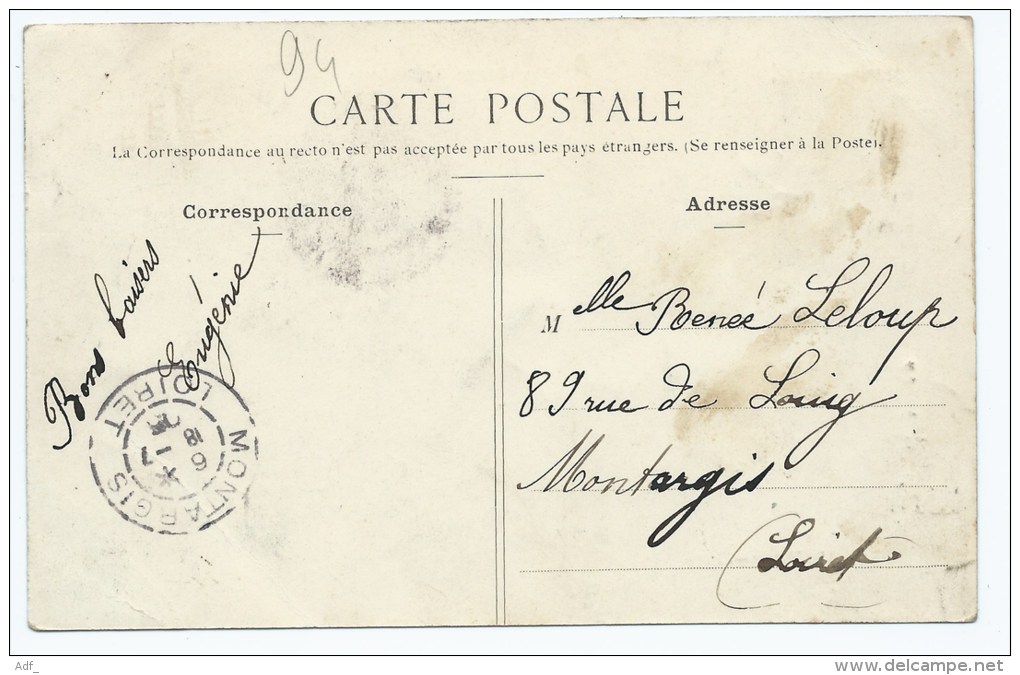 94
CARTE POSTALE
La Correspondance au recto n'est pas acceptée par tous les pays étrangers. (Se renseigner à la Poste).
Correspondance
Bons baisers
Eugénie
MONTARGIS
LOIRET
Adresse
Melle Renée Leloup
89 rue de Loing
Montargis
(Loiret
Adf_
delcampe.net